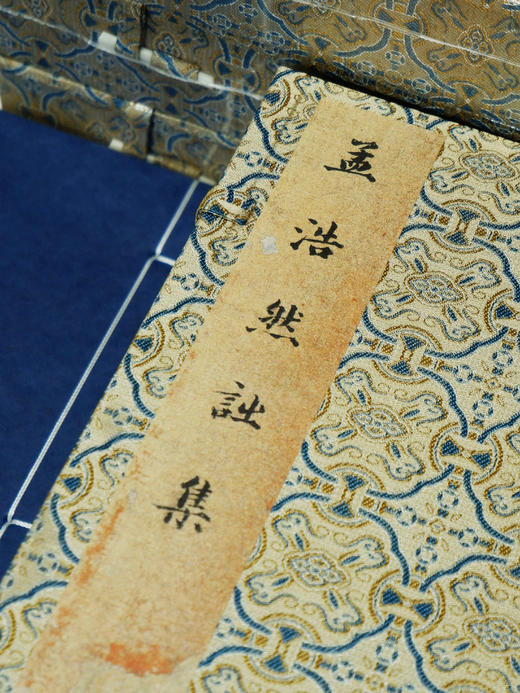 孟浩然詩集